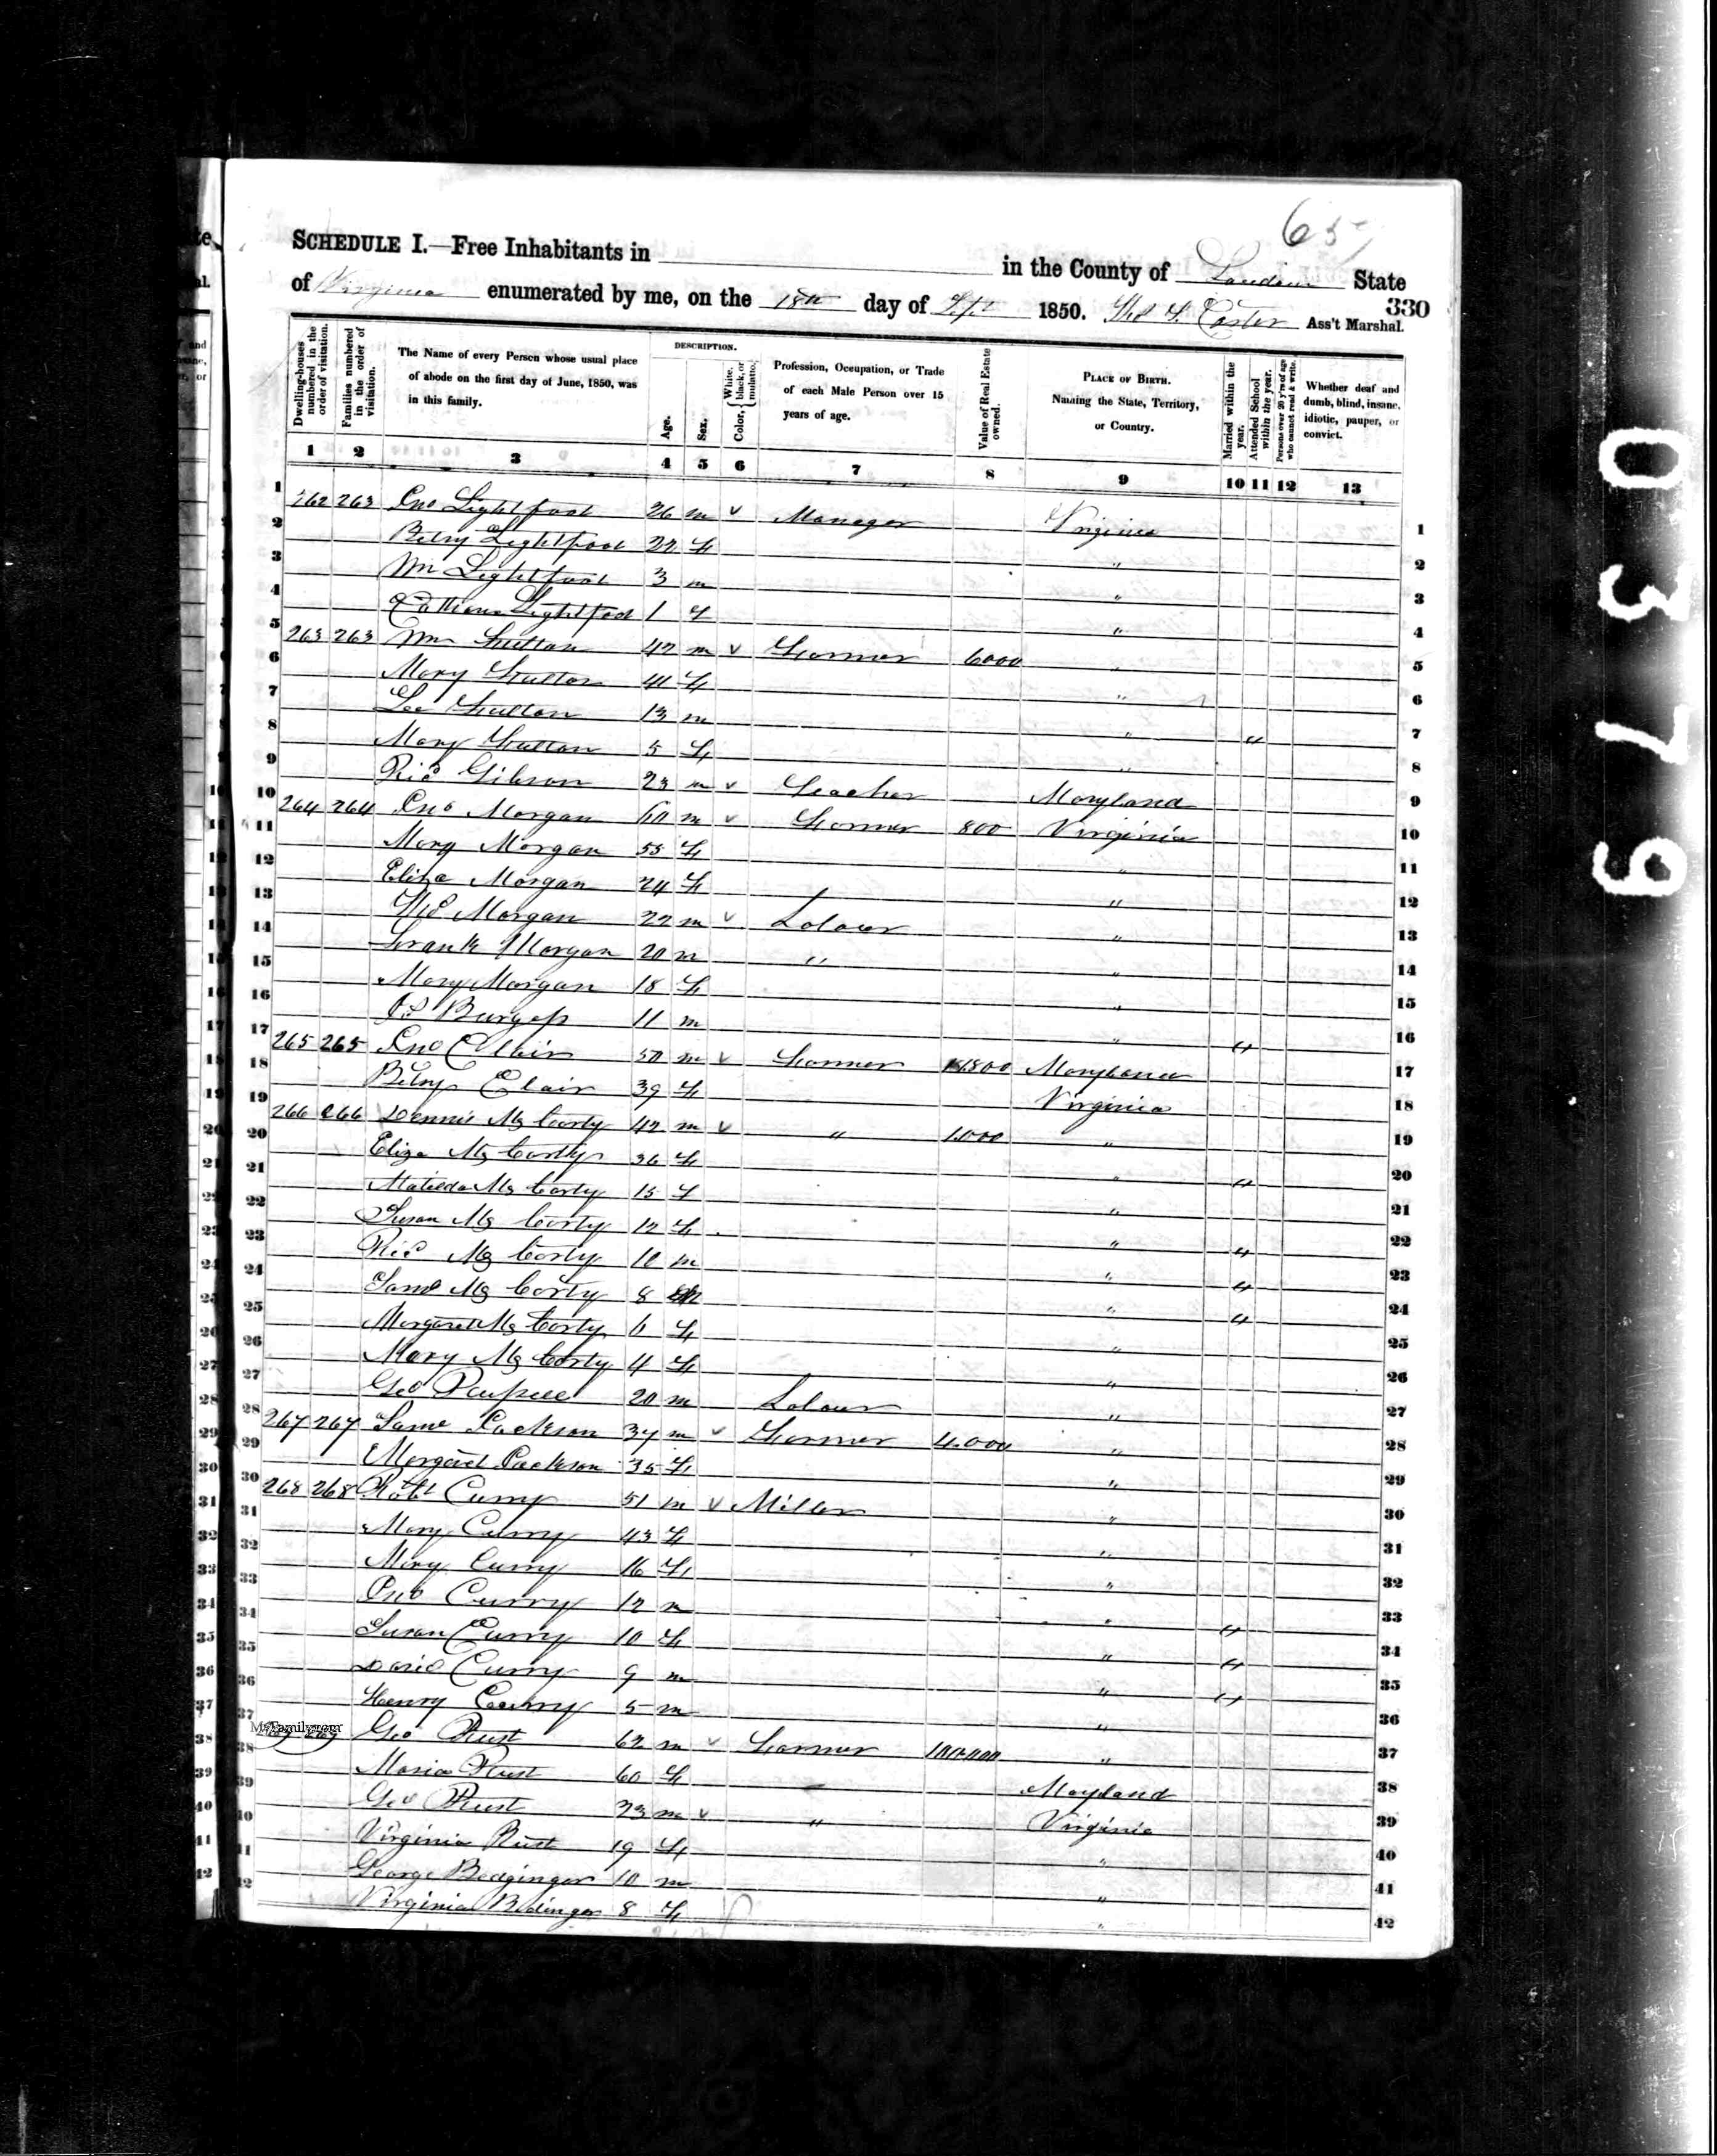 657
SCHEDULE I.—Free Inhabitants in in the County of Loudoun State
of Virginia enumerated by me, on the 18th day of Sept 1850. Ass't Marshal.
330
Dwelling-houses numbered in the order of visitation.
Families numbered in the order of visitation.
The Name of every Person whose usual place of abode on the first day of June, 1850, was in this family.
DESCRIPTION.
Age.
Sex.
Color, White, black, or mulatto.
Profession, Occupation, or Trade of each Male Person over 15 years of age.
Value of Real Estate owned.
PLACE OF BIRTH. Naming the State, Territory, or Country.
Married within the year.
Attended School within the year.
Persons over 20 y'rs of age who cannot read & write.
Whether deaf and dumb, blind, insane, idiotic, pauper, or convict.
1 2 3 4 5 6 7 8 9 10 11 12 13
1 262 263 Jno Lightfoot 26 m v Manager Virginia 1
2 Betsy Lightfoot 22 f " 2
3 Wm Lightfoot 3 m " 3
4 Lightfoot 1 f " 4
5 263 263 Wm Fulton 42 m v Farmer 6000 " 5
6 Mary Fulton 41 f " 6
7 Lee Fulton 13 m " 7
8 Mary Fulton 5 f " 8
9 Ric'd Gibson 23 m v Teacher Maryland 9
10 264 264 Jno Morgan 60 m v Farmer 800 Virginia 10
11 Mary Morgan 55 f " 11
12 Eliza Morgan 24 f " 12
13 Morgan 22 m v Labour " 13
14 Frank Morgan 20 m " " 14
15 Mary Morgan 18 f " 15
16 Burgess 11 m " 16
17 265 265 Jno 50 m v Farmer 1800 Maryland 17
18 Betsy Clair 39 f Virginia 18
19 266 266 Dennis McCarty 42 m v " 1000 " 19
20 Eliza McCarty 36 f " 20
21 Matilda McCarty 15 f " 21
22 Susan McCarty 12 f " 22
23 Ric'd McCarty 10 m " 23
24 McCarty 8 m " 24
25 Margaret McCarty 6 f " 25
26 Mary McCarty 4 f " 26
27 Geo 20 m Labour " 27
28 267 267 Jackson 37 m v Farmer 4000 " 28
29 Margaret Jackson 35 f " 29
30 268 268 Robt Curry 51 m v Miller " 30
31 Mary Curry 43 f " 31
32 Mary Curry 16 f " 32
33 Jno Curry 12 m " 33
34 Susan Curry 10 f " 34
35 David Curry 9 m " 35
36 Henry Curry 5 m " 36
37 MyFamily.com 269 269 Geo Rust 62 m v Farmer 100,000 " 37
38 Maria Rust 60 f Maryland 38
39 Geo Rust 23 m v " Virginia 39
40 Virginia Rust 19 f " 40
41 George Bedinger 10 m " 41
42 Virginia Bedinger 8 f " 42
03799